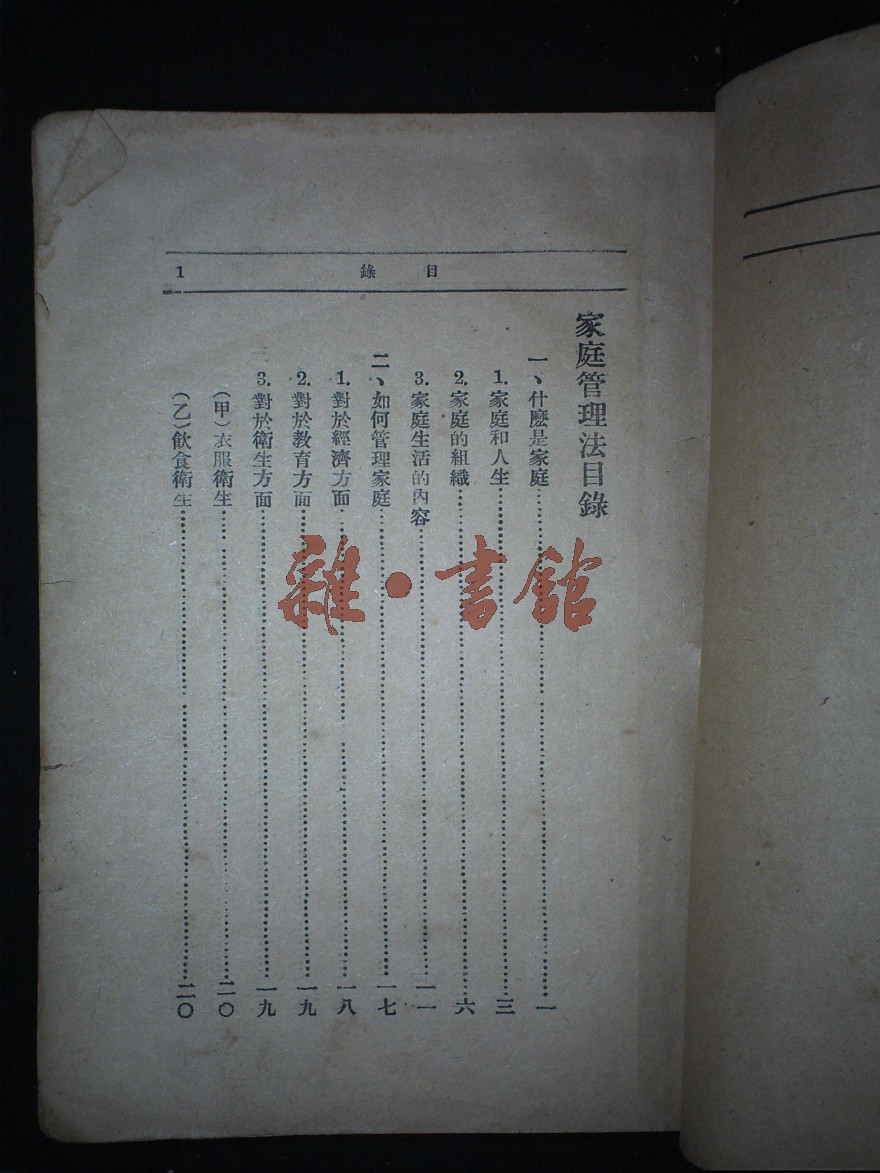 目錄 1
家庭管理法目錄
一、什麽是家庭……一
1. 家庭和人生……三
2. 家庭的組織……六
3. 家庭生活的內容……一一
二、如何管理家庭……一七
1. 對於經濟方面……一八
2. 對於教育方面……一九
3. 對於衛生方面……一九
(甲)衣服衛生……二〇
(乙)飲食衛生……二〇
雜·書館